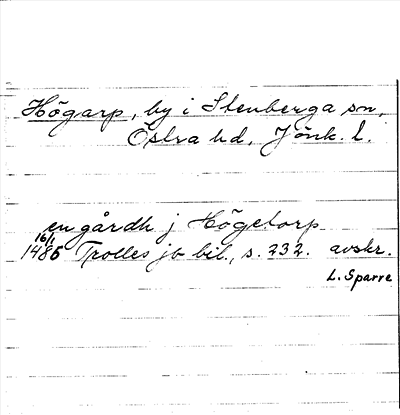 Högarp, by i Stenberga sn,
Östra hd, Jönk. l.
en gårdh j Högetorp
16/1
1486 Trolles jb bil., s. 232. avskr.
L. Sparre